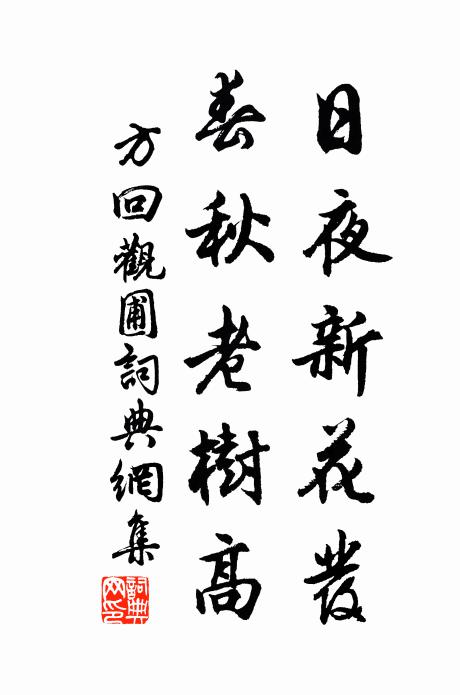 日夜新花發
春秋老樹高
方回觀圃詞典網集
詞典网印